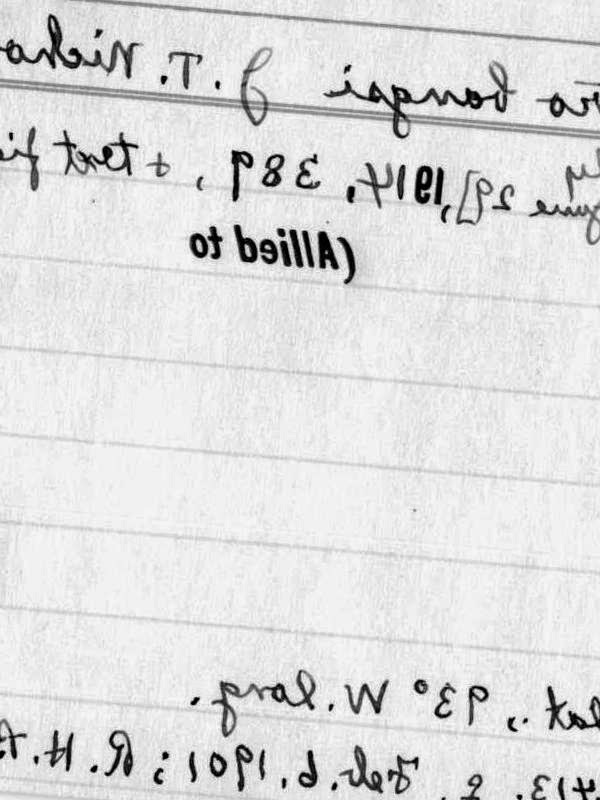 bangsi J. T. Nicho
29], 1914, 389, + text fi
(Allied to
lat., 93° W. long.
413. Feb. 6, 1901; R. H.